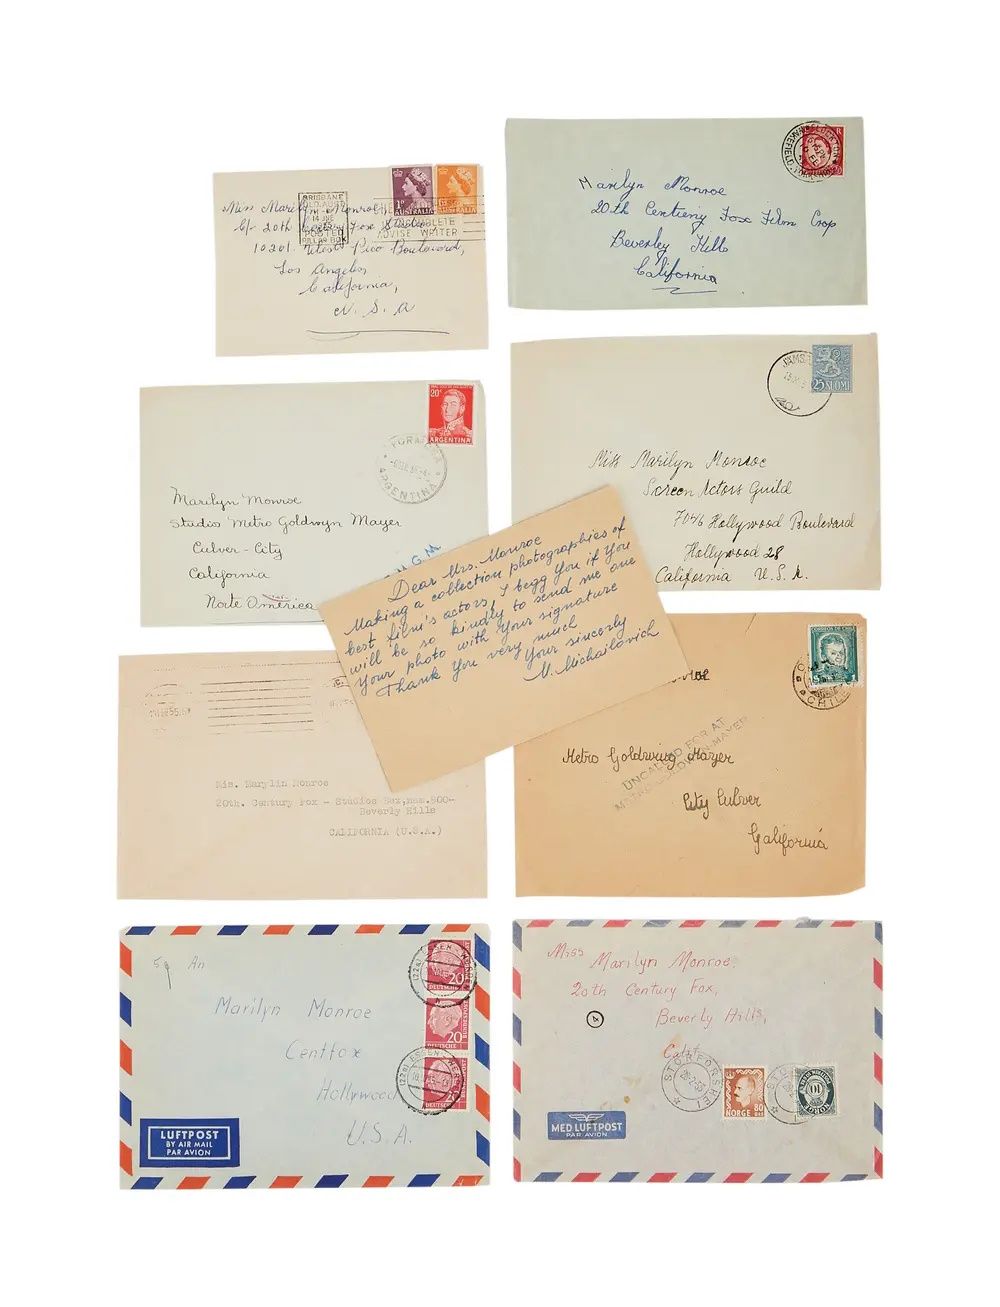 BRISBANE
POSTED
PILLAR BOX
ADVISE WRITER
1D
AUSTRALIA
AUSTRALIA
Miss Marilyn Monroe
C/- 20th Century Fox Studios,
10201 West Pico Boulevard,
Los Angeles,
California,
U. S. A
Marilyn Monroe
20th Centieny Fox Film Crop
Beverley Hills
California
20c
ARGENTINA
ARGENTINA
Marilyn Monroe
Studio Metro Goldwyn Mayer
Culver-City
California
Norte América
M.G.M.
JÄMSÄ
25 SUOMI
Miss Marilyn Monroe
Screen Actors Guild
7046 Hollywood Boulevard
Hollywood 28
California U. S. A.
Dear Mrs. Monroe
Making a collection photographies of
best film's actors, I begg You if You
will be so kindly to send me one
Your photo with Your signature
Thank You very much
Your sincerly
M. Michailovich
Mis. Marylin Monroe
20th. Century Fox - Studios Box, num. 900-
Beverly Hills
CALIFORNIA (U.S.A.)
CORREOS DE CHILE
CHILE
Metro Goldwing Mayer
UNCALLED FOR AT
METRO-GOLDWYN-MAYER
City Culver
California
5g An
Marilyn Monroe
Centfox
Hollywood
U.S.A.
ESSEN
20
DEUTSCHE BUNDESPOST
20
DEUTSCHE BUNDESPOST
ESSEN
20
DEUTSCHE BUNDESPOST
LUFTPOST
BY AIR MAIL
PAR AVION
Miss Marilyn Monroe.
20th Century Fox,
Beverly Hills,
Calif.
4
STORFORSHEI
28-2-55
NORGE 80
10
MED LUFTPOST
PAR AVION